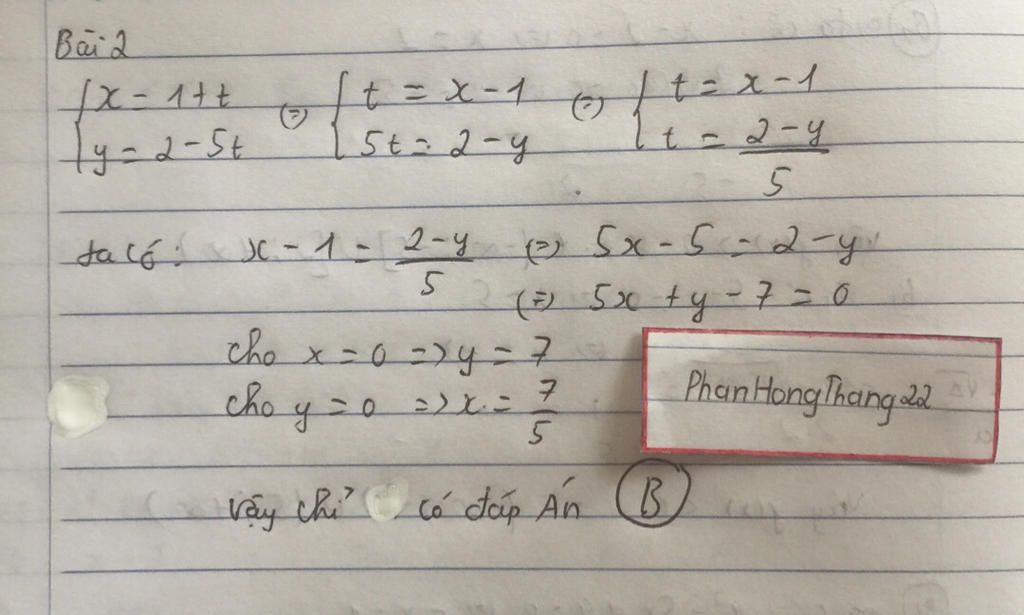 Bài 2
{x = 1+t (=) {t = x-1 (=) {t = x-1
{y = 2-5t {5t = 2-y {t = \frac{2-y}{5}
ta có: x-1 = \frac{2-y}{5} (=) 5x-5 = 2-y
(=) 5x+y-7 = 0
cho x=0 => y=7
cho y=0 => x = \frac{7}{5}
PhanHongThang22
vậy chỉ có đáp Án B